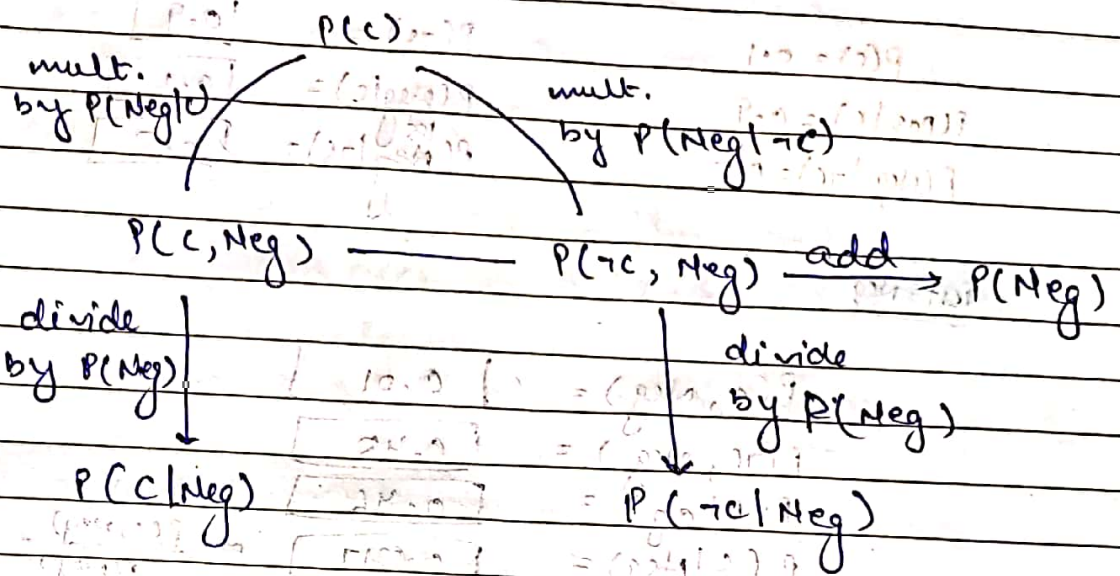 P(C)
mult.
by P(Neg|C)
mult.
by P(Neg|¬C)
P(C, Neg)
P(¬C, Neg)
add
P(Neg)
divide
by P(Neg)
divide
by P(Neg)
P(C|Neg)
P(¬C|Neg)